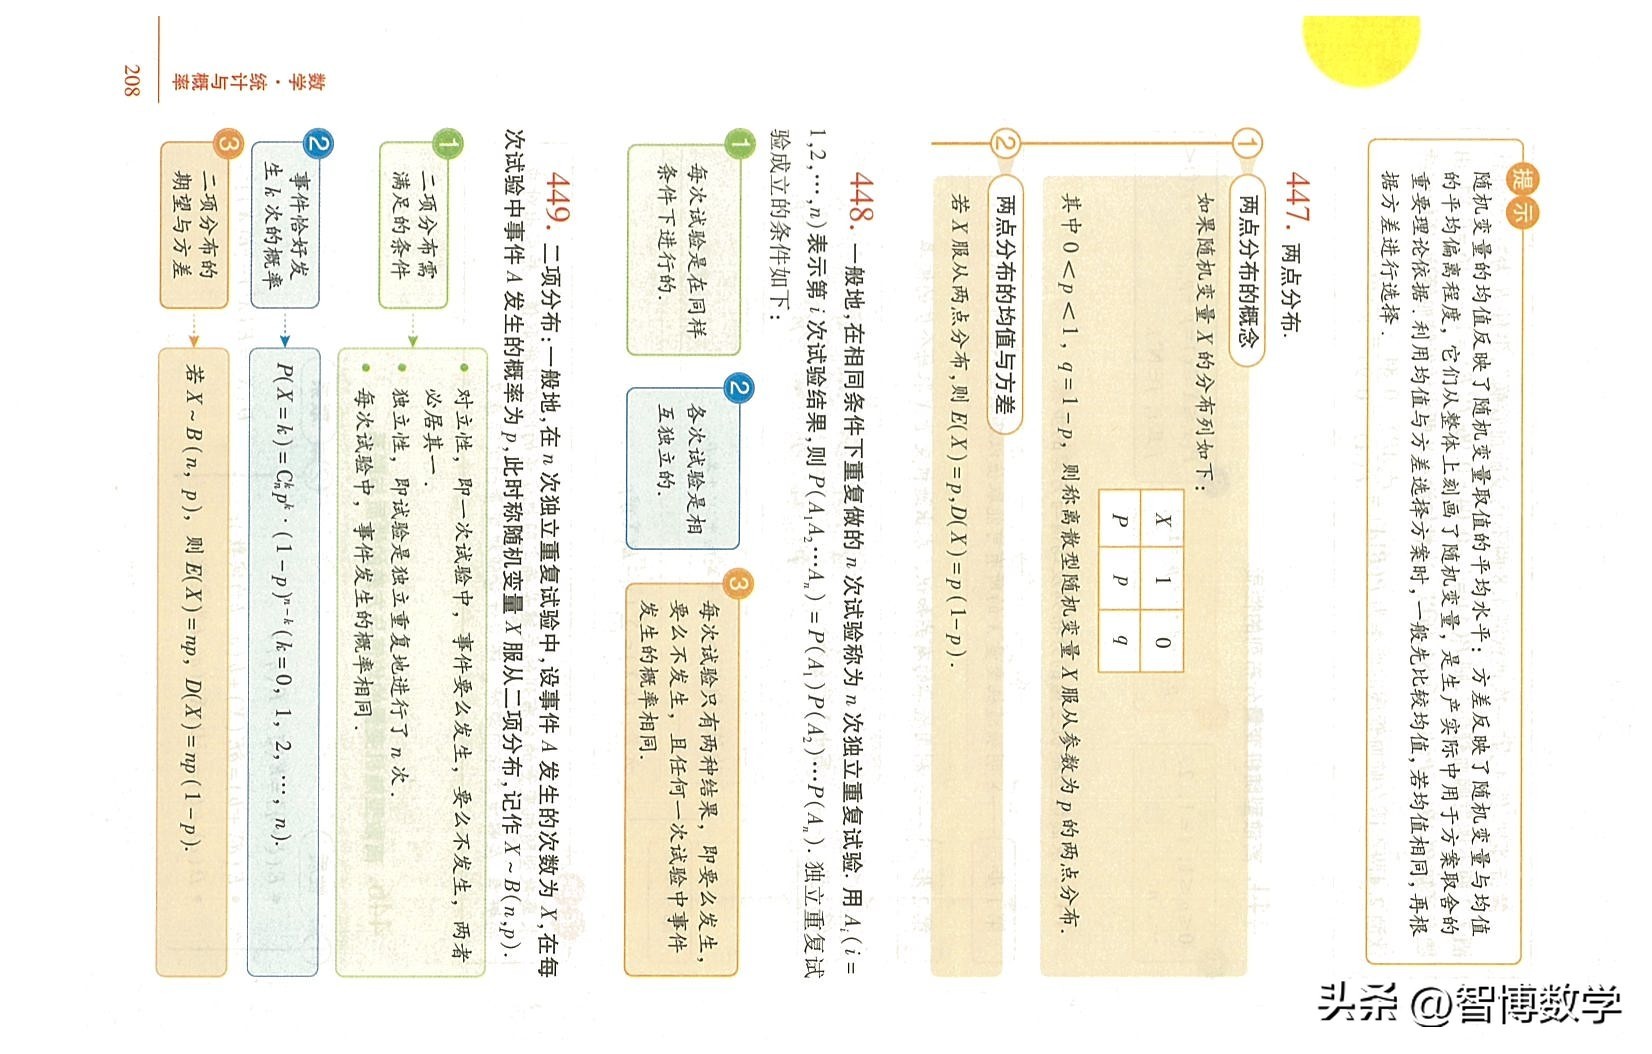 提示
随机变量的均值反映了随机变量取值的平均水平；方差反映了随机变量与均值
的平均偏离程度，它们从整体上刻画了随机变量，是生产实际中用于方案取舍的
重要理论依据．利用均值与方差选择方案时，一般先比较均值，若均值相同，再根
据方差进行选择．
447. 两点分布．
1 两点分布的概念
如果随机变量X的分布列如下：
X 1 0
P p q
其中0<p<1，q=1-p，则称离散型随机变量X服从参数为p的两点分布．
2 两点分布的均值与方差
若X服从两点分布，则E(X)=p,D(X)=p(1-p)．
448. 一般地,在相同条件下重复做的n次试验称为n次独立重复试验．用Aᵢ(i=
1,2,…,n)表示第i次试验结果,则P(A₁A₂…Aₙ)=P(A₁)P(A₂)…P(Aₙ)．独立重复试
验成立的条件如下：
1
每次试验是在同样
条件下进行的．
2
各次试验是相
互独立的．
3
每次试验只有两种结果，即要么发生，
要么不发生，且任何一次试验中事件
发生的概率相同．
449. 二项分布:一般地,在n次独立重复试验中,设事件A发生的次数为X,在每
次试验中事件A发生的概率为p,此时称随机变量X服从二项分布,记作X~B(n,p)．
1
二项分布需
满足的条件
• 对立性，即一次试验中，事件要么发生，要么不发生，两者
必居其一．
• 独立性，即试验是独立重复地进行了n次．
• 每次试验中，事件发生的概率相同．
2
事件恰好发
生k次的概率
P(X=k)=Cₙᵏpᵏ·(1-p)ⁿ⁻ᵏ(k=0，1，2，…，n)．
3
二项分布的
期望与方差
若X~B(n，p)，则E(X)=np，D(X)=np(1-p)．
数学·统计与概率
208
头条 @智博数学